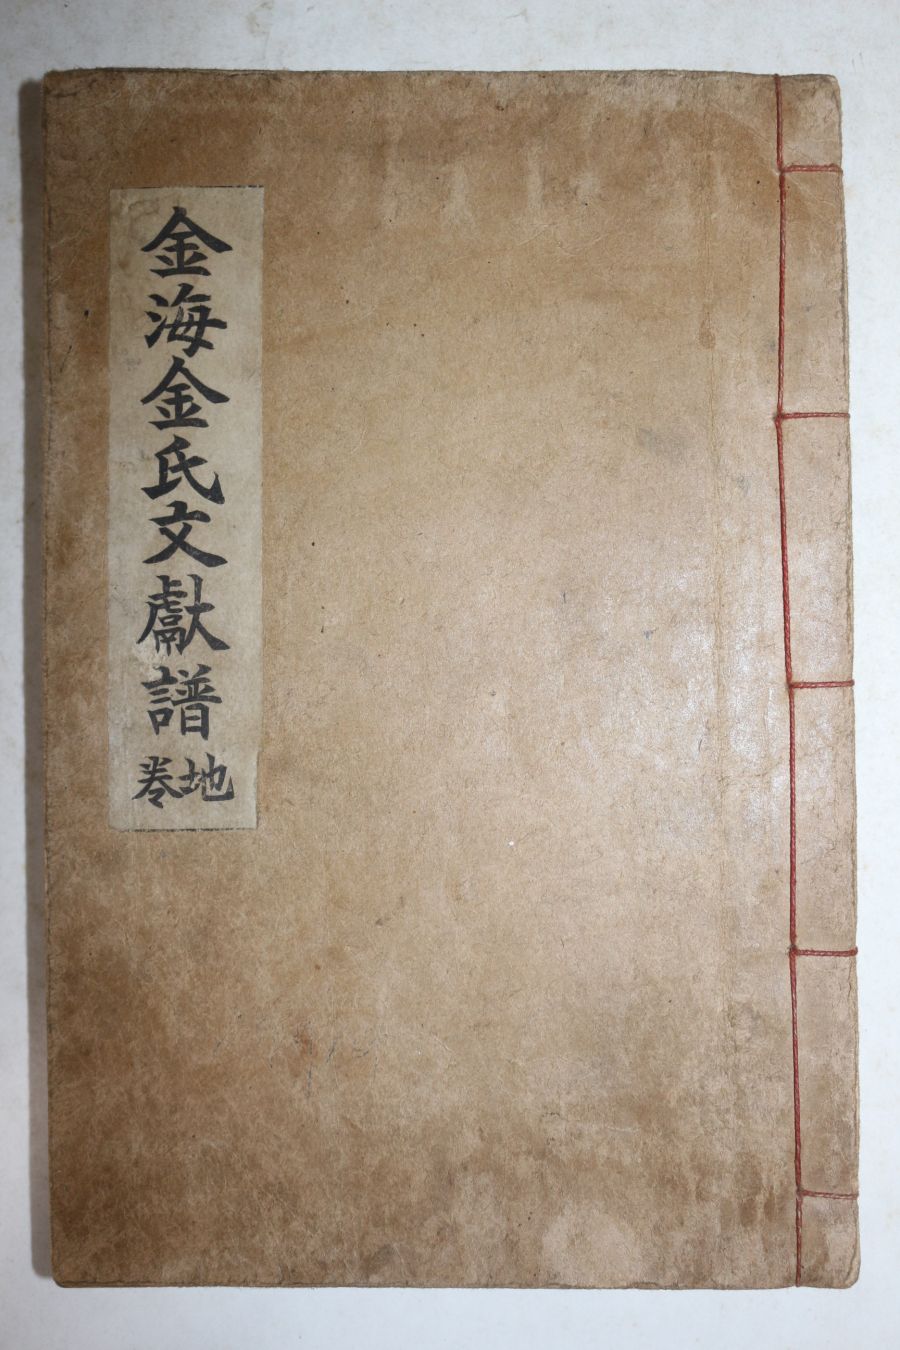 金海金氏文獻譜
地卷